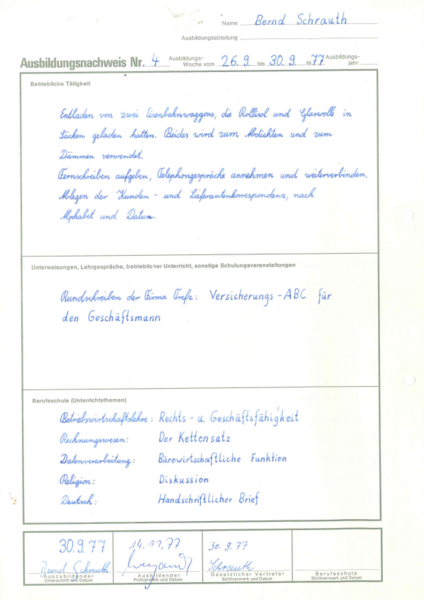 Name Bernd Schrauth
Ausbildungsabteilung
Ausbildungsnachweis Nr. 4 Ausbildungs-Woche vom 26.9 bis 30.9 1977 Ausbildungs-jahr
Betriebliche Tätigkeit
Entladen von zwei Eisenbahnwaggons, die Rollisol und Glaswolle in
Säcken geladen hatten. Beides wird zum Abdichten und zum
Dämmen verwendet.
Fernschreiben aufgeben, Telephongespräche annehmen und weiterverbinden.
Ablegen der Kunden- und Lieferantenkorrespondenz, nach
Alphabet und Datum.
Unterweisungen, Lehrgespräche, betrieblicher Unterricht, sonstige Schulungsveranstaltungen
Rundschreiben der Firma : Versicherungs-ABC für
den Geschäftsmann
Berufsschule (Unterrichtsthemen)
Betriebswirtschaftslehre: Rechts- u. Geschäftsfähigkeit
Rechnungswesen: Der Kettensatz
Datenverarbeitung: Bürowirtschaftliche Funktion
Religion: Diskussion
Deutsch: Handschriftlicher Brief
30.9.77 14.11.77 30.9.77
Bernd Schrauth Schrauth
Auszubildender Ausbildender Gesetzlicher Vertreter Berufsschule
Unterschrift und Datum Prüfvermerk und Datum Sichtvermerk und Datum Sichtvermerk und Datum